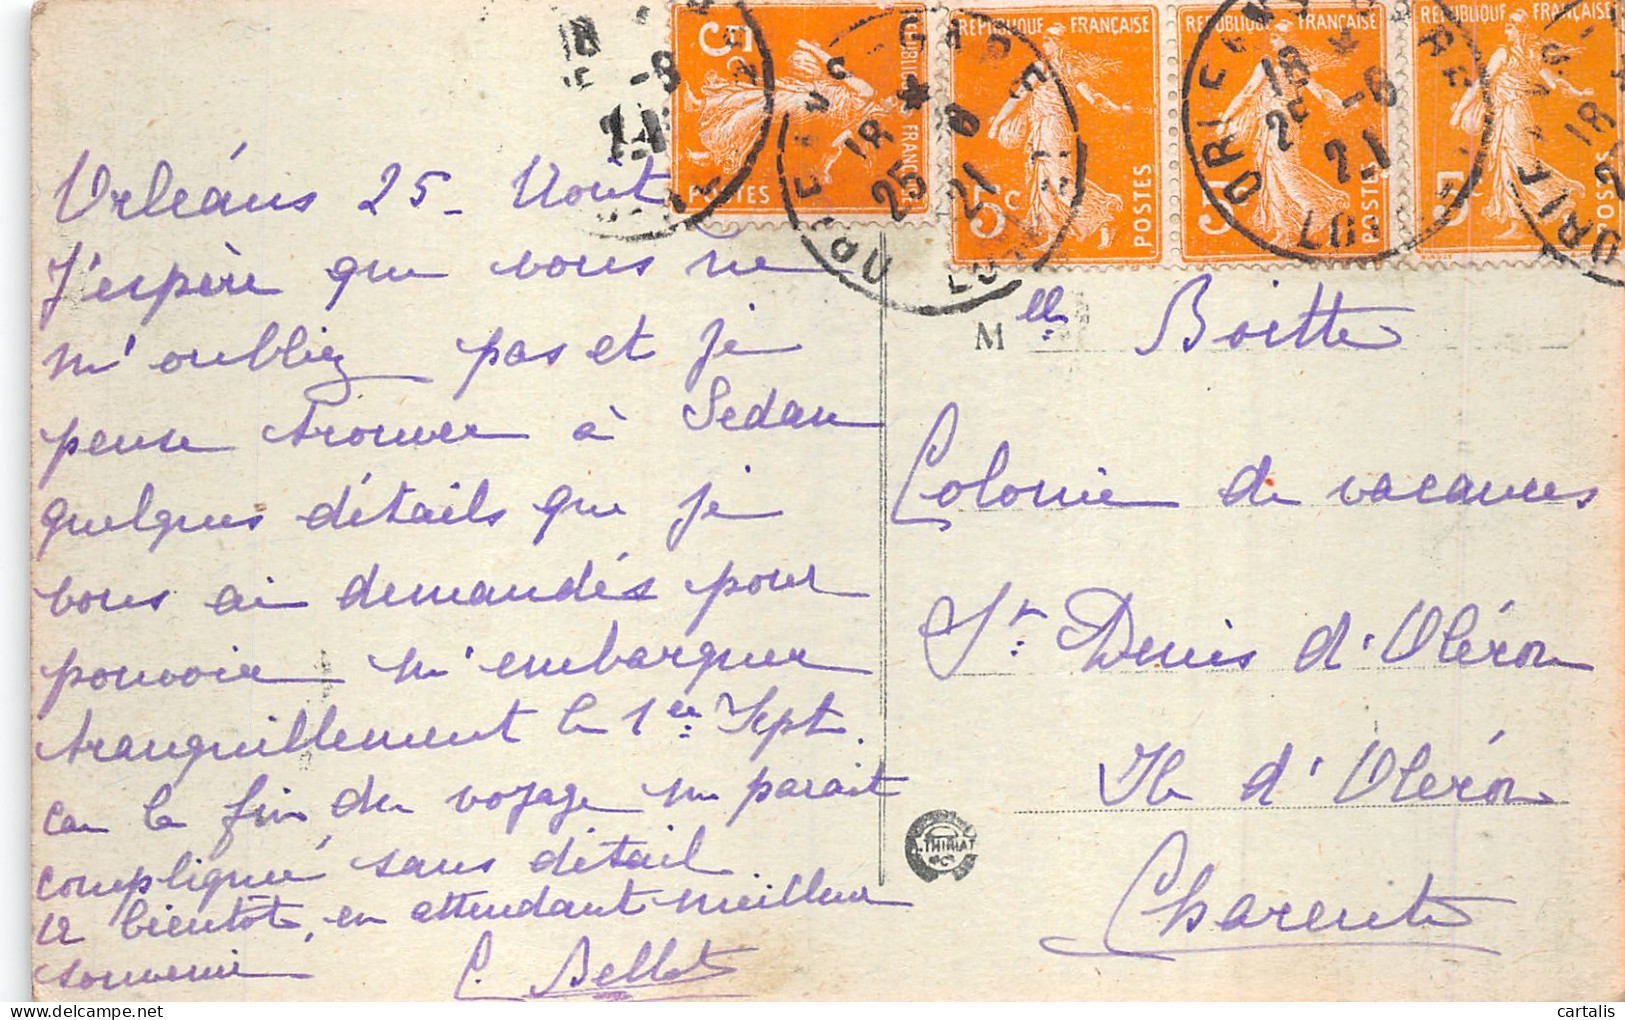 RÉPUBLIQUE FRANÇAISE
5c
POSTES
RÉPUBLIQUE FRANÇAISE
5c
POSTES
RÉPUBLIQUE FRANÇAISE
5c
POSTES
RÉPUBLIQUE FRANÇAISE
5c
POSTES
18
25 -8
21
Orléans 25 - Août
J'espère que vous ne
m'oubliez pas et je
pense trouver à Sedan
quelques détails que je
vous ai demandés pour
pouvoir m'embarquer
tranquillement le 1er Sept.
car la fin du voyage me parait
compliqué sans détail
à bientôt, en attendant meilleur
souvenir
C. Bellot
Mlle Boitte
Colonie de vacances
St Denis d'Oléron
Ile d'Oléron
Charente
THIRIAT
cartalis
delcampe.net